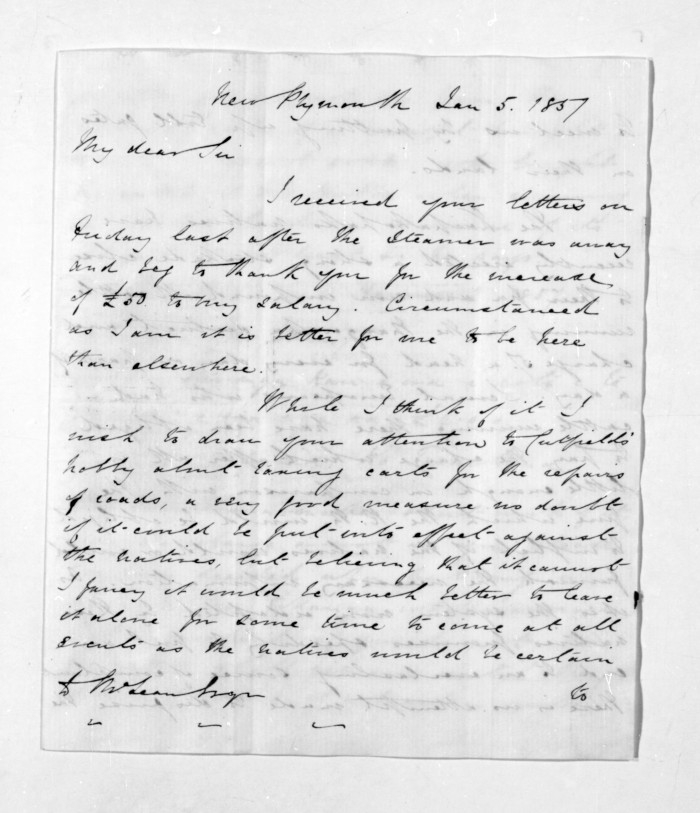 New Plymouth Jan 5. 1857
My dear Sir
I received your letters on
Friday last after the steamer was away
and beg to thank you for the increase
of £50 to my salary. Circumstanced
as I am it is better for me to be here
than elsewhere.
While I think of it I
wish to draw your attention to Cutfield's
hobby about taxing carts for the repairs
of roads, a very good measure no doubt
if it could be put into effect against
the natives, but believing that it cannot
I fancy it would be much better to leave
it alone for some time to come at all
events as the natives would be certain
McLean Esqr
to